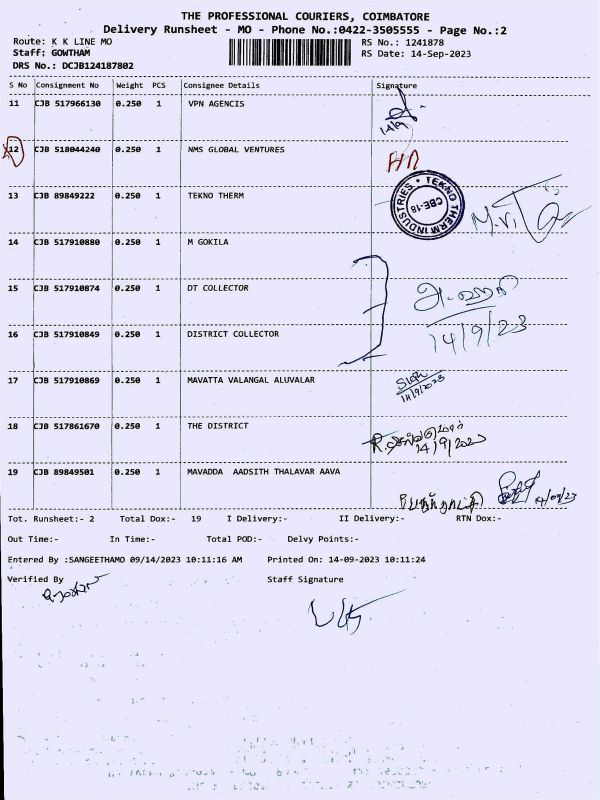 THE PROFESSIONAL COURIERS, COIMBATORE
Delivery Runsheet - MO - Phone No.:0422-3505555 - Page No.:2
Route: K K LINE MO
RS No.: 1241878
Staff: GOWTHAM
RS Date: 14-Sep-2023
DRS No.: DCJB124187802
S No Consignment No Weight PCS Consignee Details Signature
11 CJB 517966130 0.250 1 VPN AGENCIS
14/9
12 CJB 518044240 0.250 1 NMS GLOBAL VENTURES
13 CJB 89849222 0.250 1 TEKNO THERM
TEKNO THERM INDUSTRIES CBE-18
14 CJB 517910880 0.250 1 M GOKILA
15 CJB 517910874 0.250 1 DT COLLECTOR
16 CJB 517910849 0.250 1 DISTRICT COLLECTOR
14/9/23
17 CJB 517910869 0.250 1 MAVATTA VALANGAL ALUVALAR
14/9/2023
18 CJB 517861670 0.250 1 THE DISTRICT
14/9/2023
19 CJB 89849501 0.250 1 MAVADDA AADSITH THALAVAR AAVA
14/09/23
Tot. Runsheet:- 2 Total Dox:- 19 I Delivery:- II Delivery:- RTN Dox:-
Out Time:- In Time:- Total POD:- Delvy Points:-
Entered By :SANGEETHAMO 09/14/2023 10:11:16 AM Printed On: 14-09-2023 10:11:24
Verified By Staff Signature